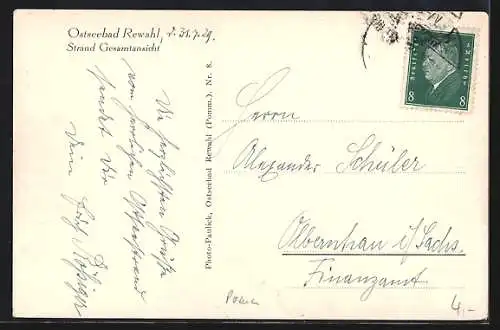 Ostseebad Rewahl, d. 31.7.29.
Strand Gesamtansicht
Die herzlichsten Grüße
vom herrlichen Ostseestrand
sendet Dir
Dein
Photo-Paulick, Ostseebad Rewahl (Pomm.), Nr. 8.
Deutsches Reich
8 8
Herrn
Alexander Schüler
Olbernhau i/Sachs.
Finanzamt
4,-